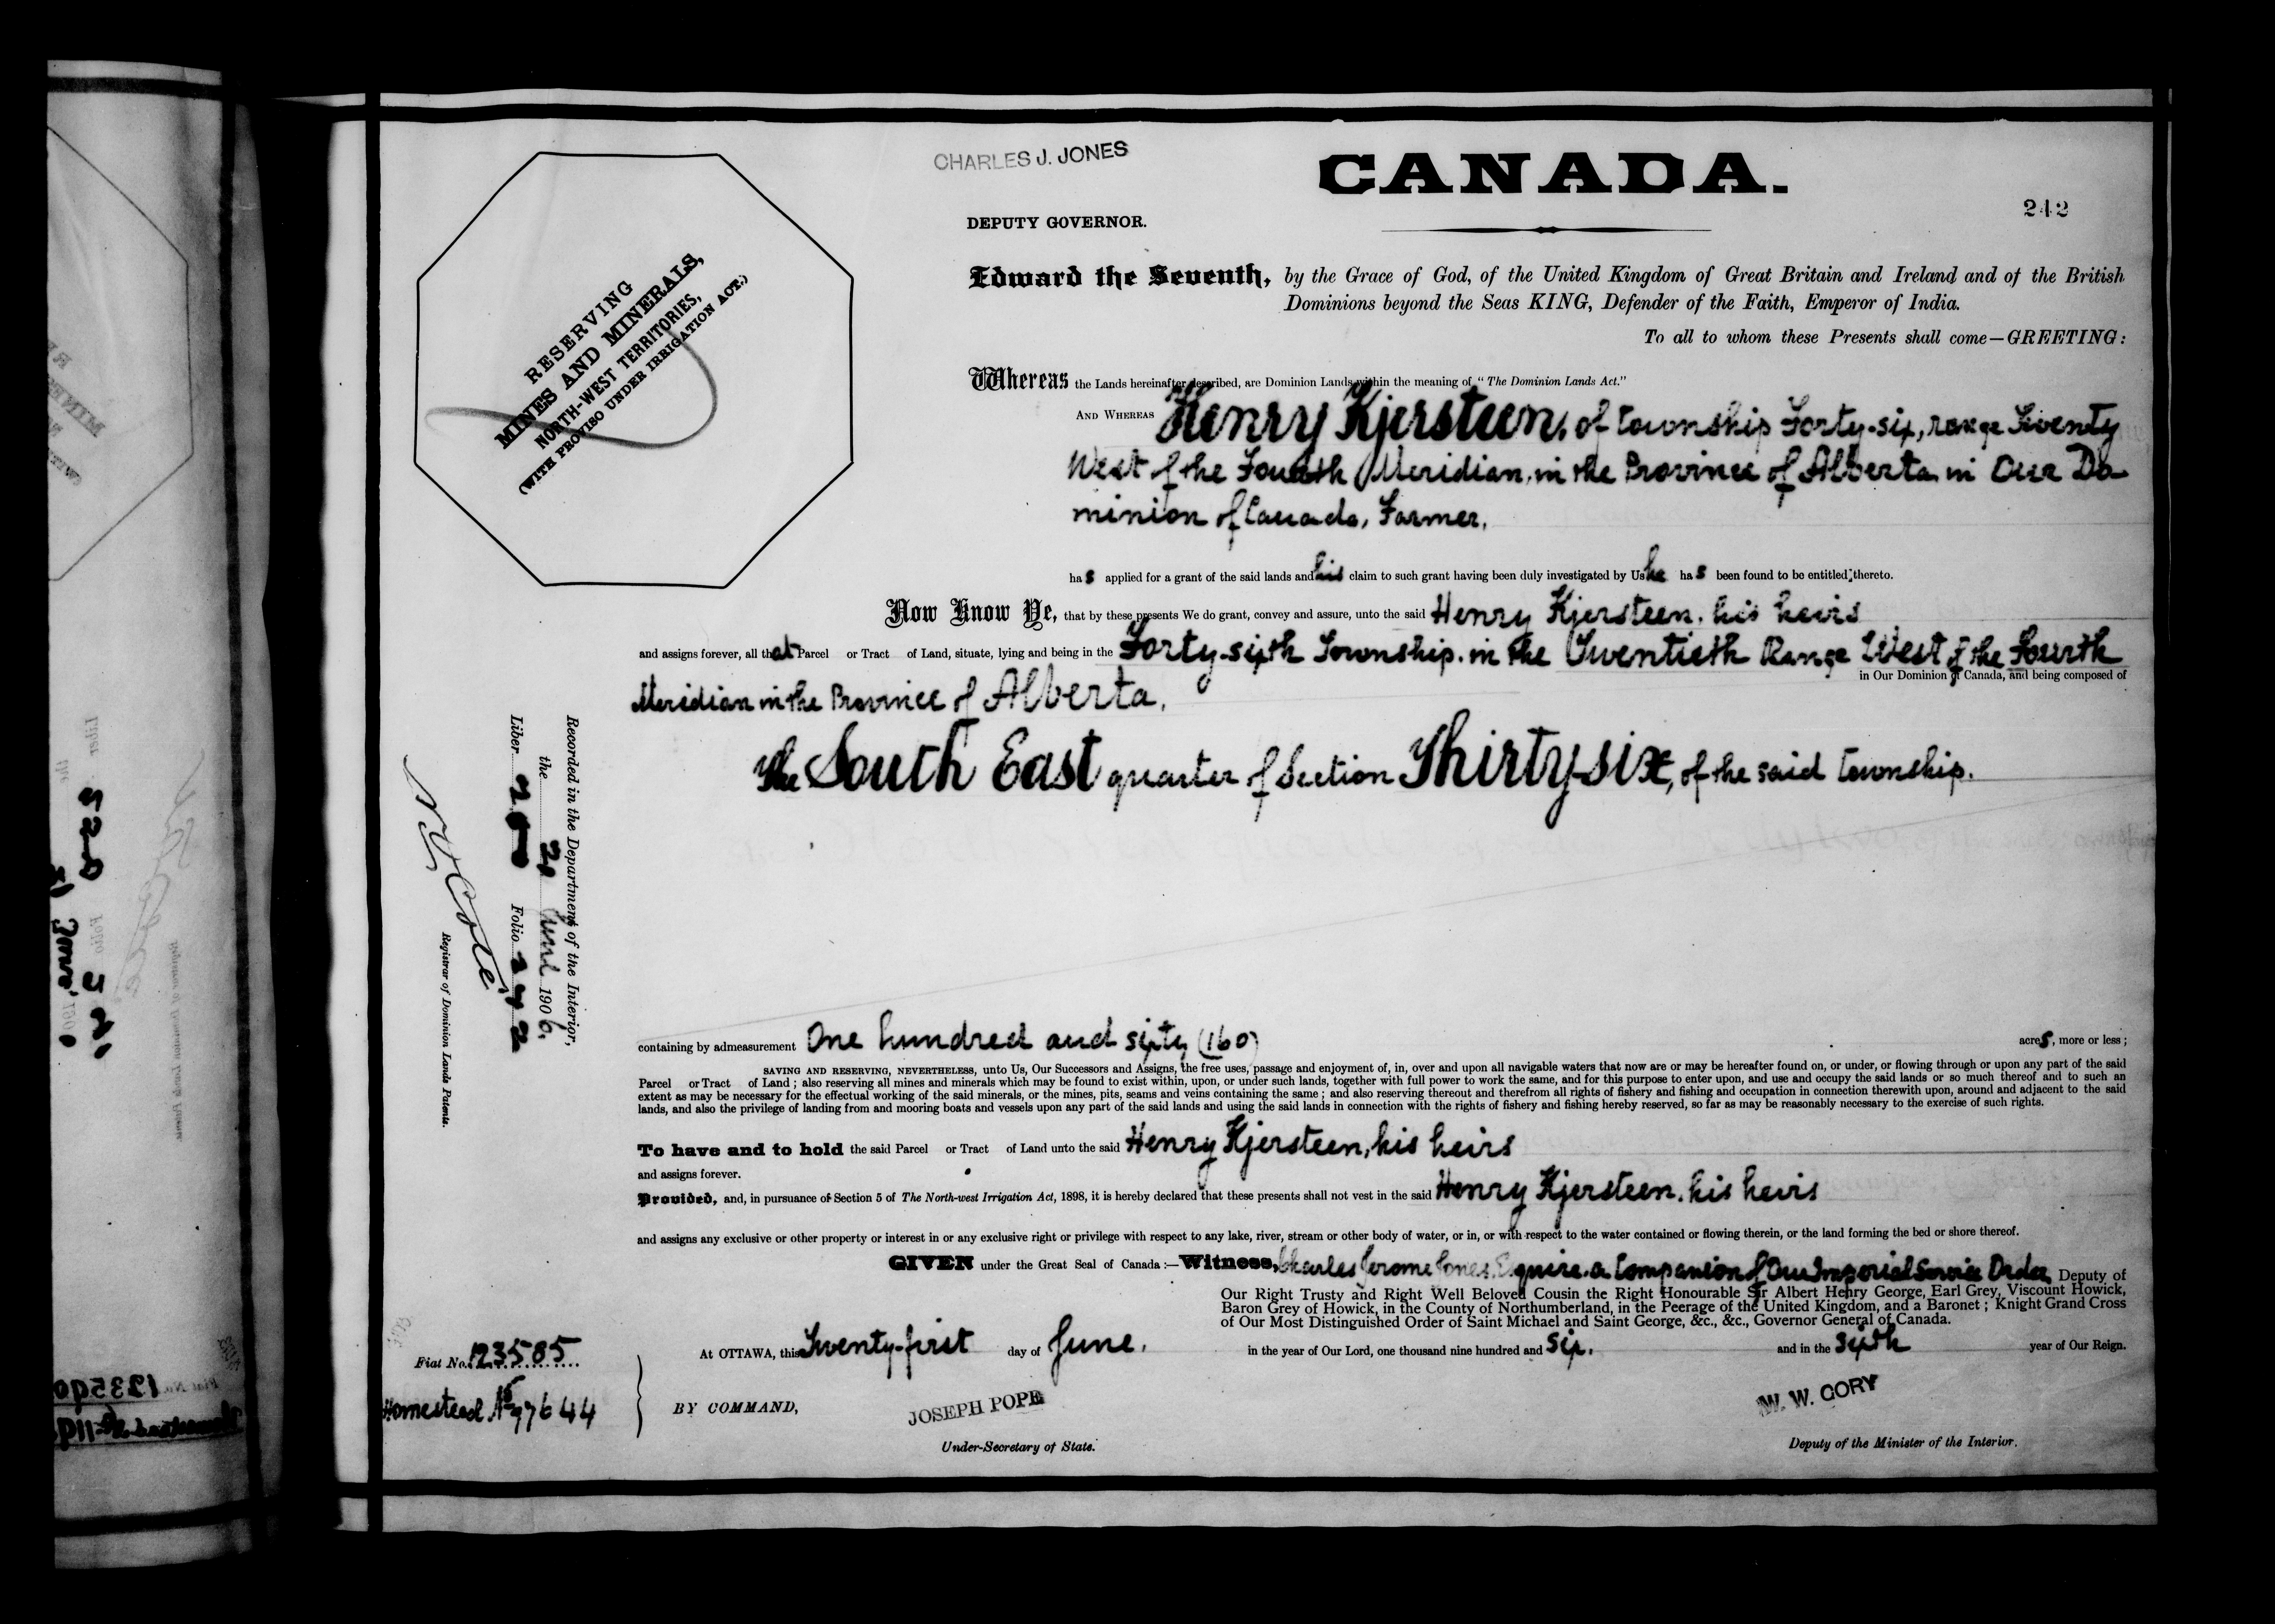 CHARLES J. JONES
CANADA.
242
DEPUTY GOVERNOR.
RESERVING
MINES AND MINERALS,
NORTH-WEST TERRITORIES,
(WITH PROVISO UNDER IRRIGATION ACT.)
Edward the Seventh, by the Grace of God, of the United Kingdom of Great Britain and Ireland and of the British
Dominions beyond the Seas KING, Defender of the Faith, Emperor of India.
To all to whom these Presents shall come—GREETING:
Whereas the Lands hereinafter described, are Dominion Lands within the meaning of "The Dominion Lands Act."
AND WHEREAS Henry Kjersteen, of township Forty-six, range Twenty
West of the Fourth Meridian, in the Province of Alberta in Our Do
minion of Canada, Farmer,
has applied for a grant of the said lands and his claim to such grant having been duly investigated by Us he has been found to be entitled thereto.
Now Know Ye, that by these presents We do grant, convey and assure, unto the said Henry Kjersteen, his heirs
and assigns forever, all that Parcel or Tract of Land, situate, lying and being in the Forty-sixth Township, in the Twentieth Range West of the Fourth
in Our Dominion of Canada, and being composed of
Meridian in the Province of Alberta,
The South East quarter of Section Thirty-six, of the said township.
Recorded in the Department of the Interior,
the June 1906.
Liber Folio 242
Registrar of Dominion Lands Patents.
containing by admeasurement One hundred and sixty (160) acres, more or less;
SAVING AND RESERVING, NEVERTHELESS, unto Us, Our Successors and Assigns, the free uses, passage and enjoyment of, in, over and upon all navigable waters that now are or may be hereafter found on, or under, or flowing through or upon any part of the said
Parcel or Tract of Land; also reserving all mines and minerals which may be found to exist within, upon, or under such lands, together with full power to work the same, and for this purpose to enter upon, and use and occupy the said lands or so much thereof and to such an
extent as may be necessary for the effectual working of the said minerals, or the mines, pits, seams and veins containing the same; and also reserving thereout and therefrom all rights of fishery and fishing and occupation in connection therewith upon, around and adjacent to the said
lands, and also the privilege of landing from and mooring boats and vessels upon any part of the said lands and using the said lands in connection with the rights of fishery and fishing hereby reserved, so far as may be reasonably necessary to the exercise of such rights.
To have and to hold the said Parcel or Tract of Land unto the said Henry Kjersteen, his heirs
and assigns forever.
Provided, and, in pursuance of Section 5 of The North-west Irrigation Act, 1898, it is hereby declared that these presents shall not vest in the said Henry Kjersteen, his heirs
and assigns any exclusive or other property or interest in or any exclusive right or privilege with respect to any lake, river, stream or other body of water, or in, or with respect to the water contained or flowing therein, or the land forming the bed or shore thereof.
GIVEN under the Great Seal of Canada:—Witness, Charles Jerome Jones, Esquire, a Companion of Our Imperial Service Order, Deputy of
Our Right Trusty and Right Well Beloved Cousin the Right Honourable Sir Albert Henry George, Earl Grey, Viscount Howick,
Baron Grey of Howick, in the County of Northumberland, in the Peerage of the United Kingdom, and a Baronet; Knight Grand Cross
of Our Most Distinguished Order of Saint Michael and Saint George, &c., &c., Governor General of Canada.
At OTTAWA, this Twenty-first day of June, in the year of Our Lord, one thousand nine hundred and six, and in the sixth year of Our Reign.
Fiat No. 123585
Homestead No 97644
BY COMMAND,
JOSEPH POPE
Under-Secretary of State.
W. W. CORY
Deputy of the Minister of the Interior.